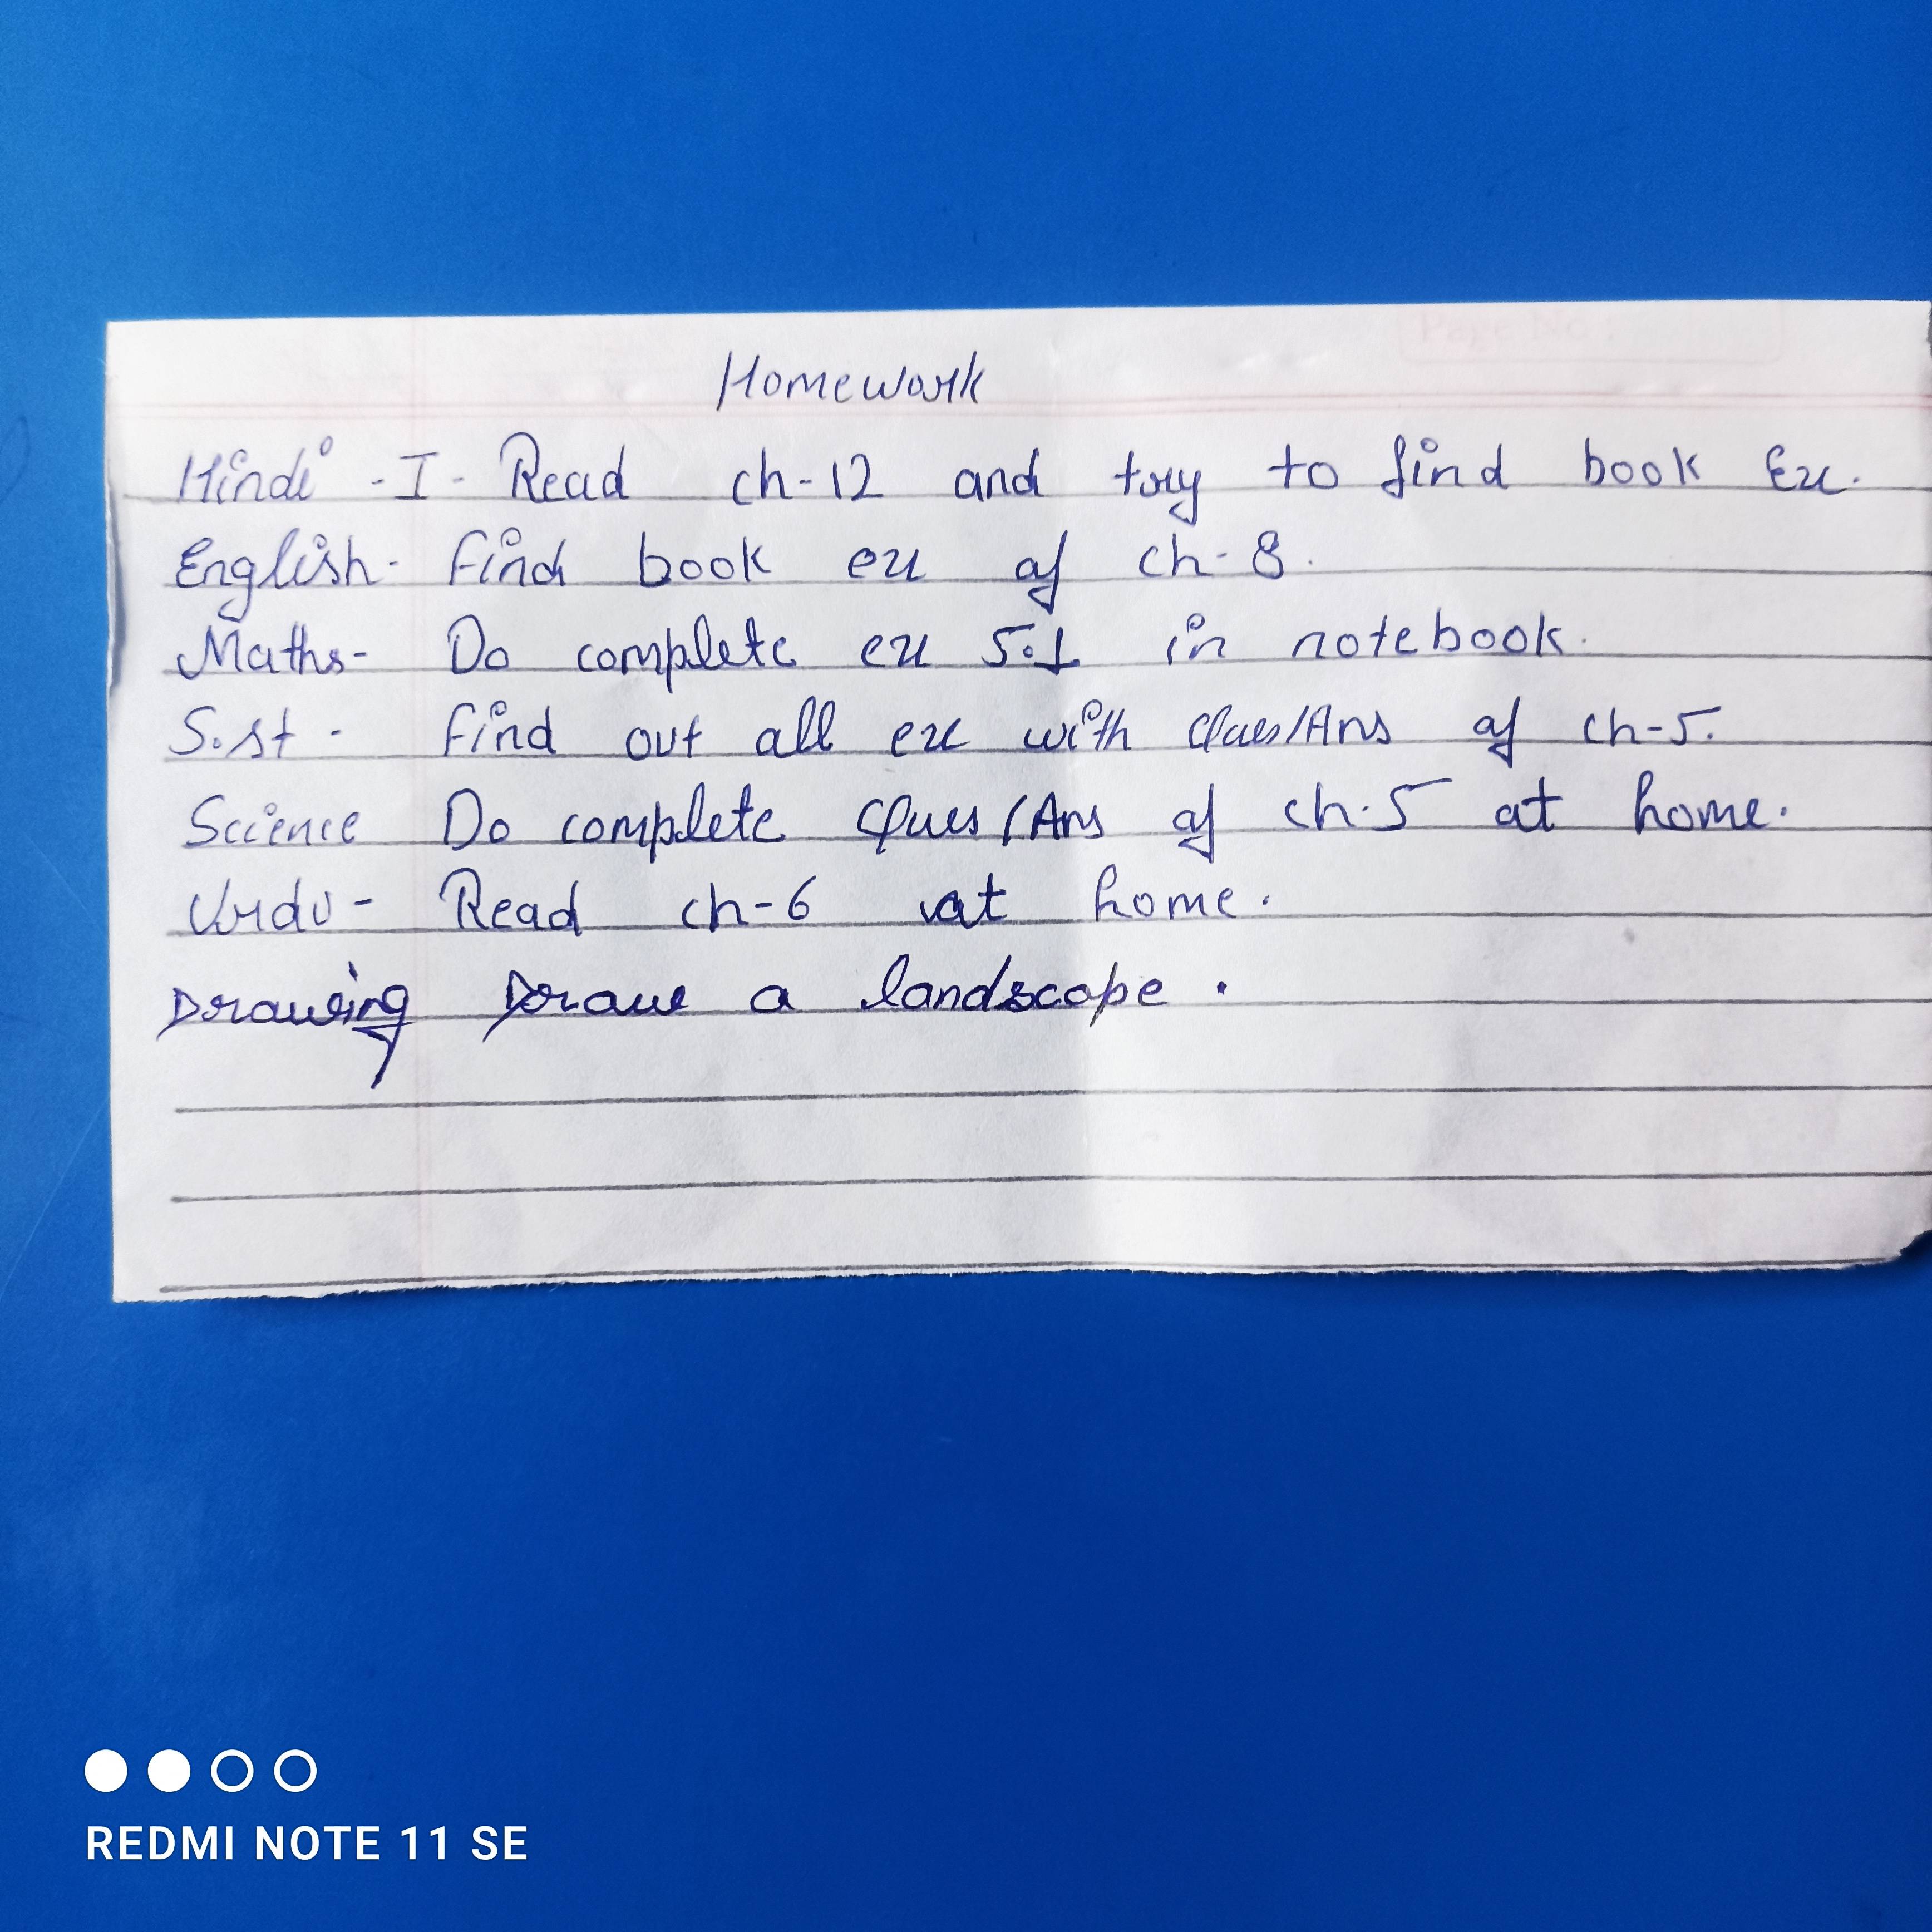 Page No :
Homework
Hindi - I - Read ch-12 and try to find book Ex.
English - Find book ex of ch-8.
Maths - Do complete ex 5.1 in notebook.
S.st - Find out all ex with Ques/Ans of ch-5.
Science Do complete Ques/Ans of ch-5 at home.
Urdu - Read ch-6 at home.
Drawing Draw a landscape.
REDMI NOTE 11 SE